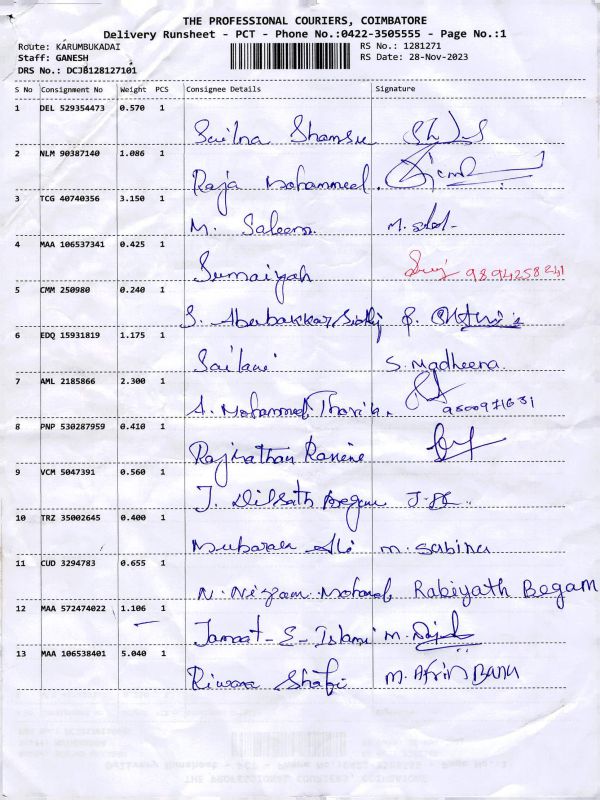 THE PROFESSIONAL COURIERS, COIMBATORE
Delivery Runsheet - PCT - Phone No.:0422-3505555 - Page No.:1
Route: KARUMBUKADAI RS No.: 1281271
Staff: GANESH RS Date: 28-Nov-2023
DRS No.: DCJB128127101
S No Consignment No Weight PCS Consignee Details Signature
1 DEL 529354473 0.570 1
Sailna Shamsu
2 NLM 90387140 1.086 1
Raja Mohammed.
3 TCG 40740356 3.150 1
M. Saleem
4 MAA 106537341 0.425 1
Sumaiyah 9894258241
5 CMM 250980 0.240 1
S. Abubakkar Sidhi
6 EDQ 15931819 1.175 1
Sailani S. Madheena.
7 AML 2185866 2.300 1
A. Mohammed Tharik. 9500971631
8 PNP 530287959 0.410 1
9 VCM 5047391 0.560 1
J. Dilsath Begum
10 TRZ 35002645 0.400 1
Mubarak Ali M. Sabina
11 CUD 3294783 0.655 1
N. Nizam Mohamed Rabiyath Begam
12 MAA 572474022 1.106 1
Jamaat-E-Islami
13 MAA 106538401 5.040 1
Riwana Shafi M. Afrin Banu